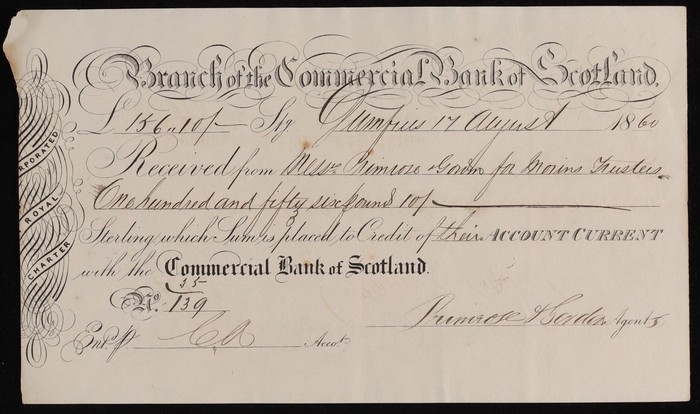 Branch of the Commercial Bank of Scotland.
£ 156 " 10/- Stg Dumfries 17 August 1860
Received from Messrs Primrose & Gordon for Morins Trustees
One hundred and fifty six pounds 10/-
Sterling, which Sum is placed to Credit of their ACCOUNT CURRENT
with the Commercial Bank of Scotland.
No. 35/139
Primrose & Gordon Agents
Entd. Accot.
INCORPORATED
ROYAL
CHARTER